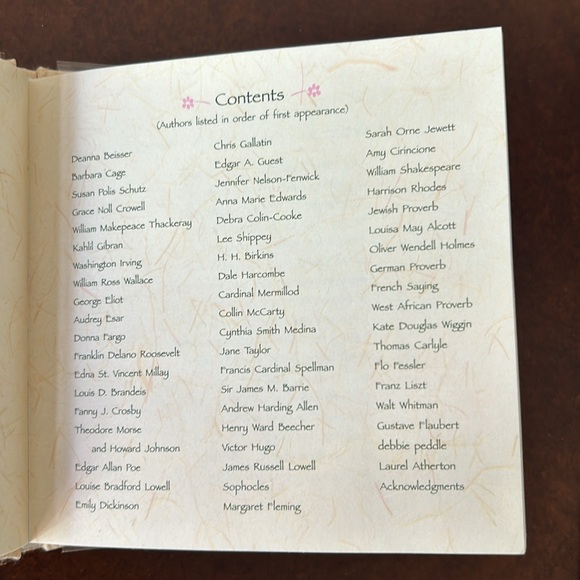 Contents
(Authors listed in order of first appearance)
Deanna Beisser
Barbara Cage
Susan Polis Schutz
Grace Noll Crowell
William Makepeace Thackeray
Kahlil Gibran
Washington Irving
William Ross Wallace
George Eliot
Audrey Esar
Donna Fargo
Franklin Delano Roosevelt
Edna St. Vincent Millay
Louis D. Brandeis
Fanny J. Crosby
Theodore Morse
and Howard Johnson
Edgar Allan Poe
Louise Bradford Lowell
Emily Dickinson
Chris Gallatin
Edgar A. Guest
Jennifer Nelson-Fenwick
Anna Marie Edwards
Debra Colin-Cooke
Lee Shippey
H. H. Birkins
Dale Harcombe
Cardinal Mermillod
Collin McCarty
Cynthia Smith Medina
Jane Taylor
Francis Cardinal Spellman
Sir James M. Barrie
Andrew Harding Allen
Henry Ward Beecher
Victor Hugo
James Russell Lowell
Sophocles
Margaret Fleming
Sarah Orne Jewett
Amy Cirincione
William Shakespeare
Harrison Rhodes
Jewish Proverb
Louisa May Alcott
Oliver Wendell Holmes
German Proverb
French Saying
West African Proverb
Kate Douglas Wiggin
Thomas Carlyle
Flo Fessler
Franz Liszt
Walt Whitman
Gustave Flaubert
debbie peddle
Laurel Atherton
Acknowledgments